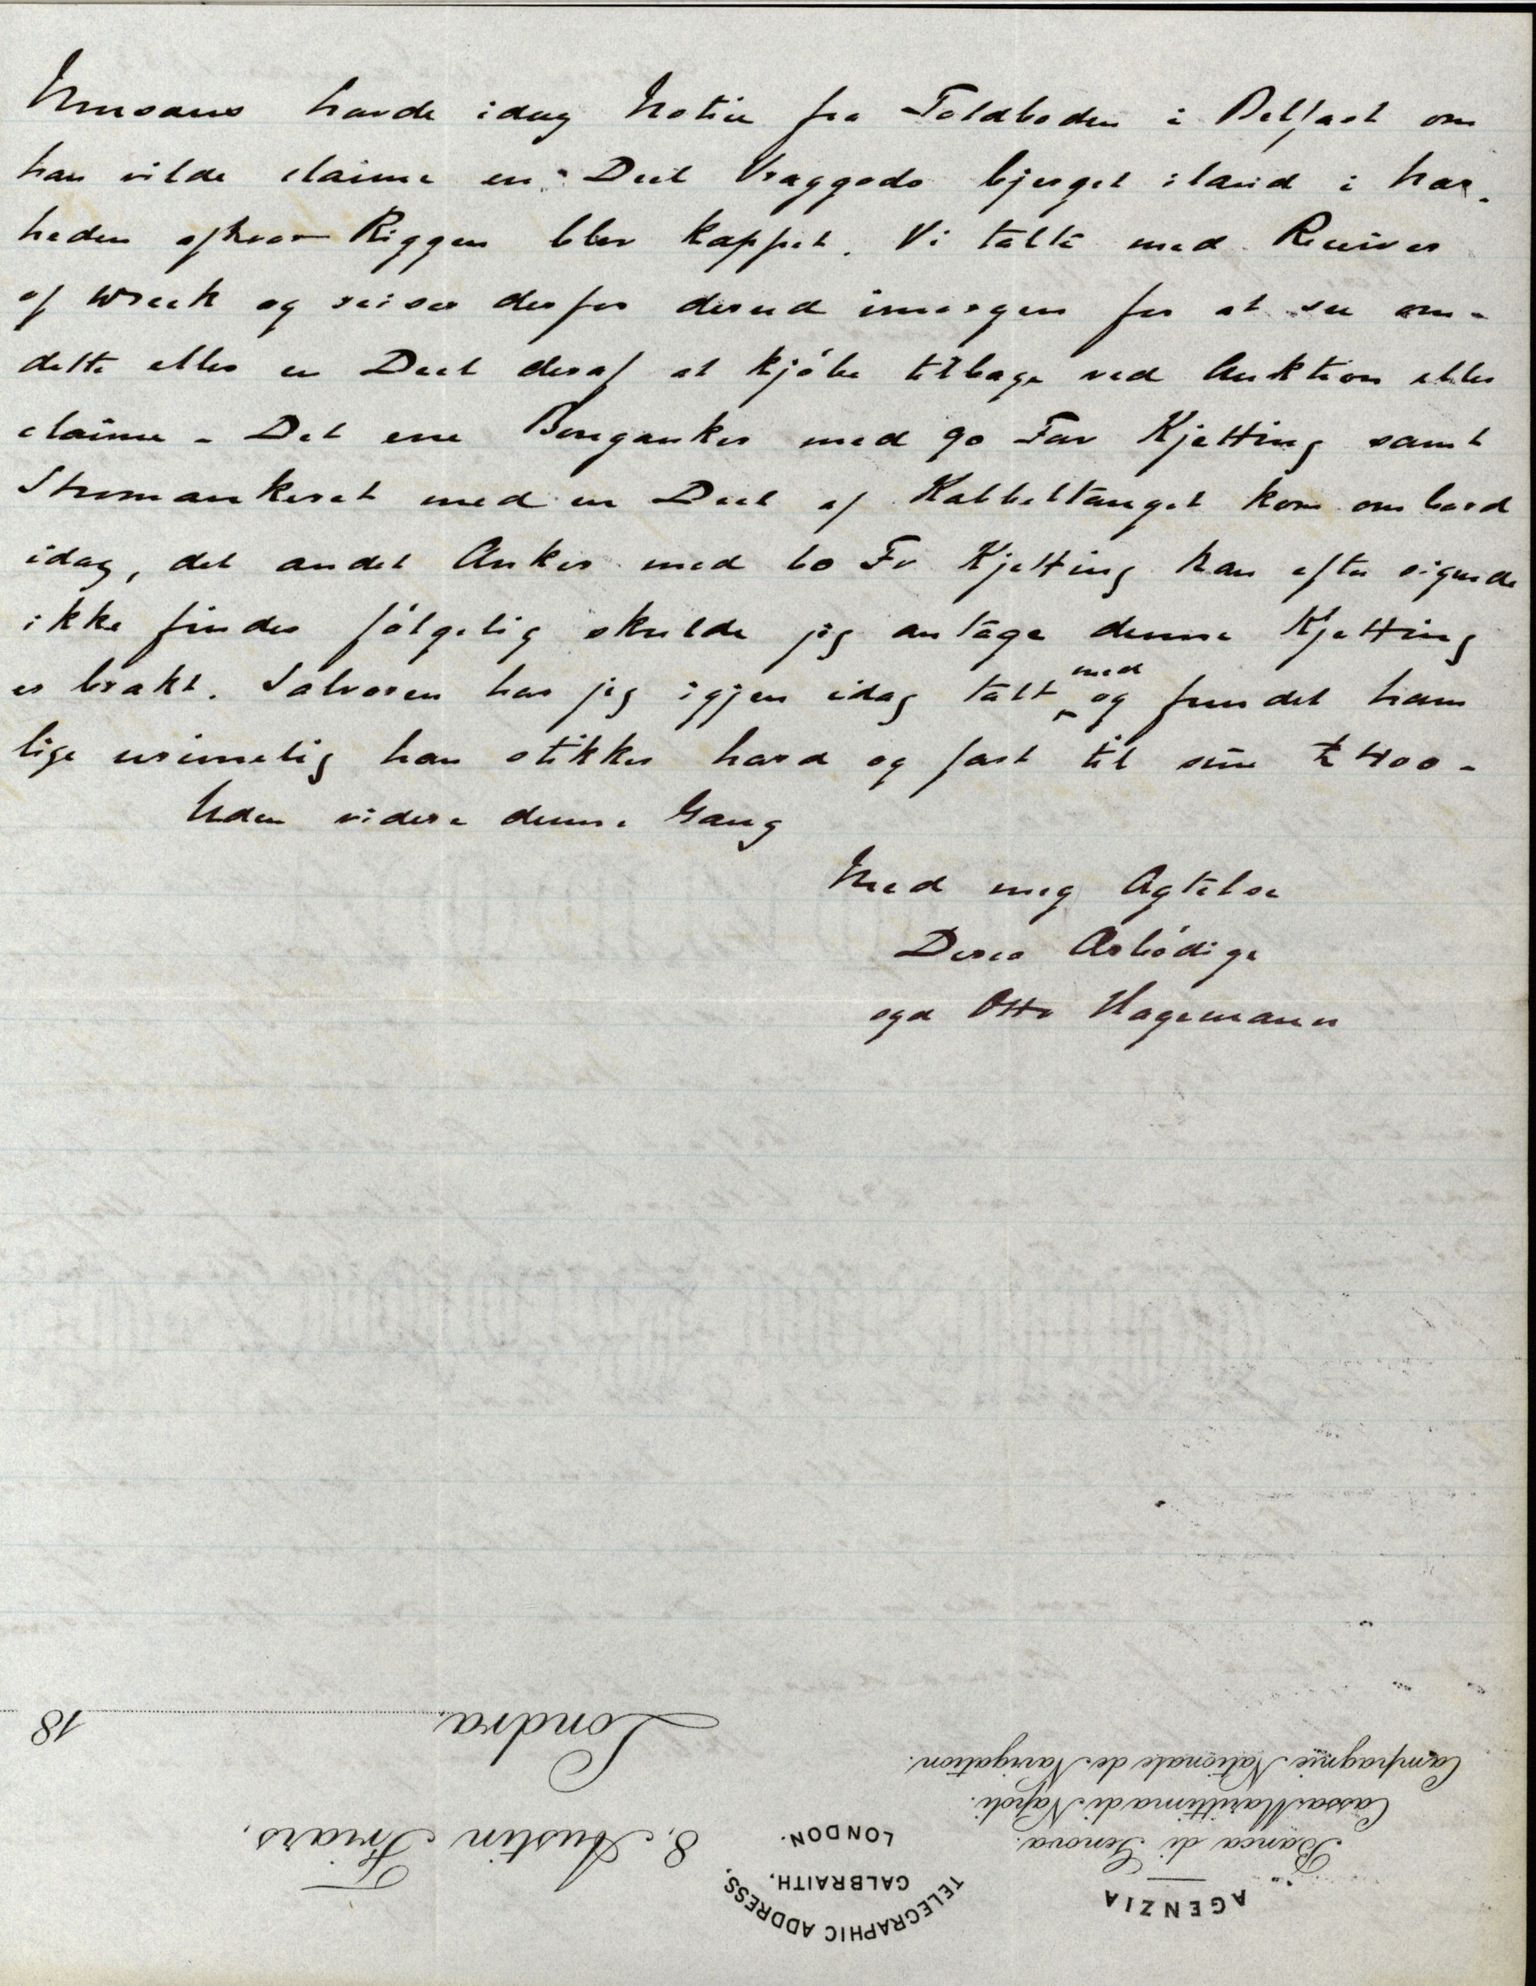 havde idag Notice fra Toldboden i Belfast om
han vilde claime en Deel Vraggods bjerget iland i Nær-
heden afhvor Riggen blev kappet. Vi talte med Receiver
of Wreck og reiser derfor derned imorgen for at see om-
dette eller en Deel deraf at kjóbe tilbage ved Auktion eller
claime - Det ene Bouganker med 90 Fav Kjetting samt
Stromankeret med en Deel af Kabbeltauget kom ombord
idag, det andet Anker med 60 Fv Kjetting kan efter sigende
ikke findes fólgelig skulde jeg antage denne Kjetting
er brakt. Salvoren har jeg igjen idag talt med og fundet ham
lige urimelig han stikker hard og fast til sine £ 400 -
Uden videre denne Gang
Med meg Agtelse
Deres Ærbódige
sgd Otto Hagemann
AGENZIA
Banca di Genova.
Cassa Marittima di Napoli.
Compagnie Nationale de Navigation.
TELEGRAPHIC ADDRESS,
GALBRAITH,
LONDON.
8, Austin Friars,
Londra, 18